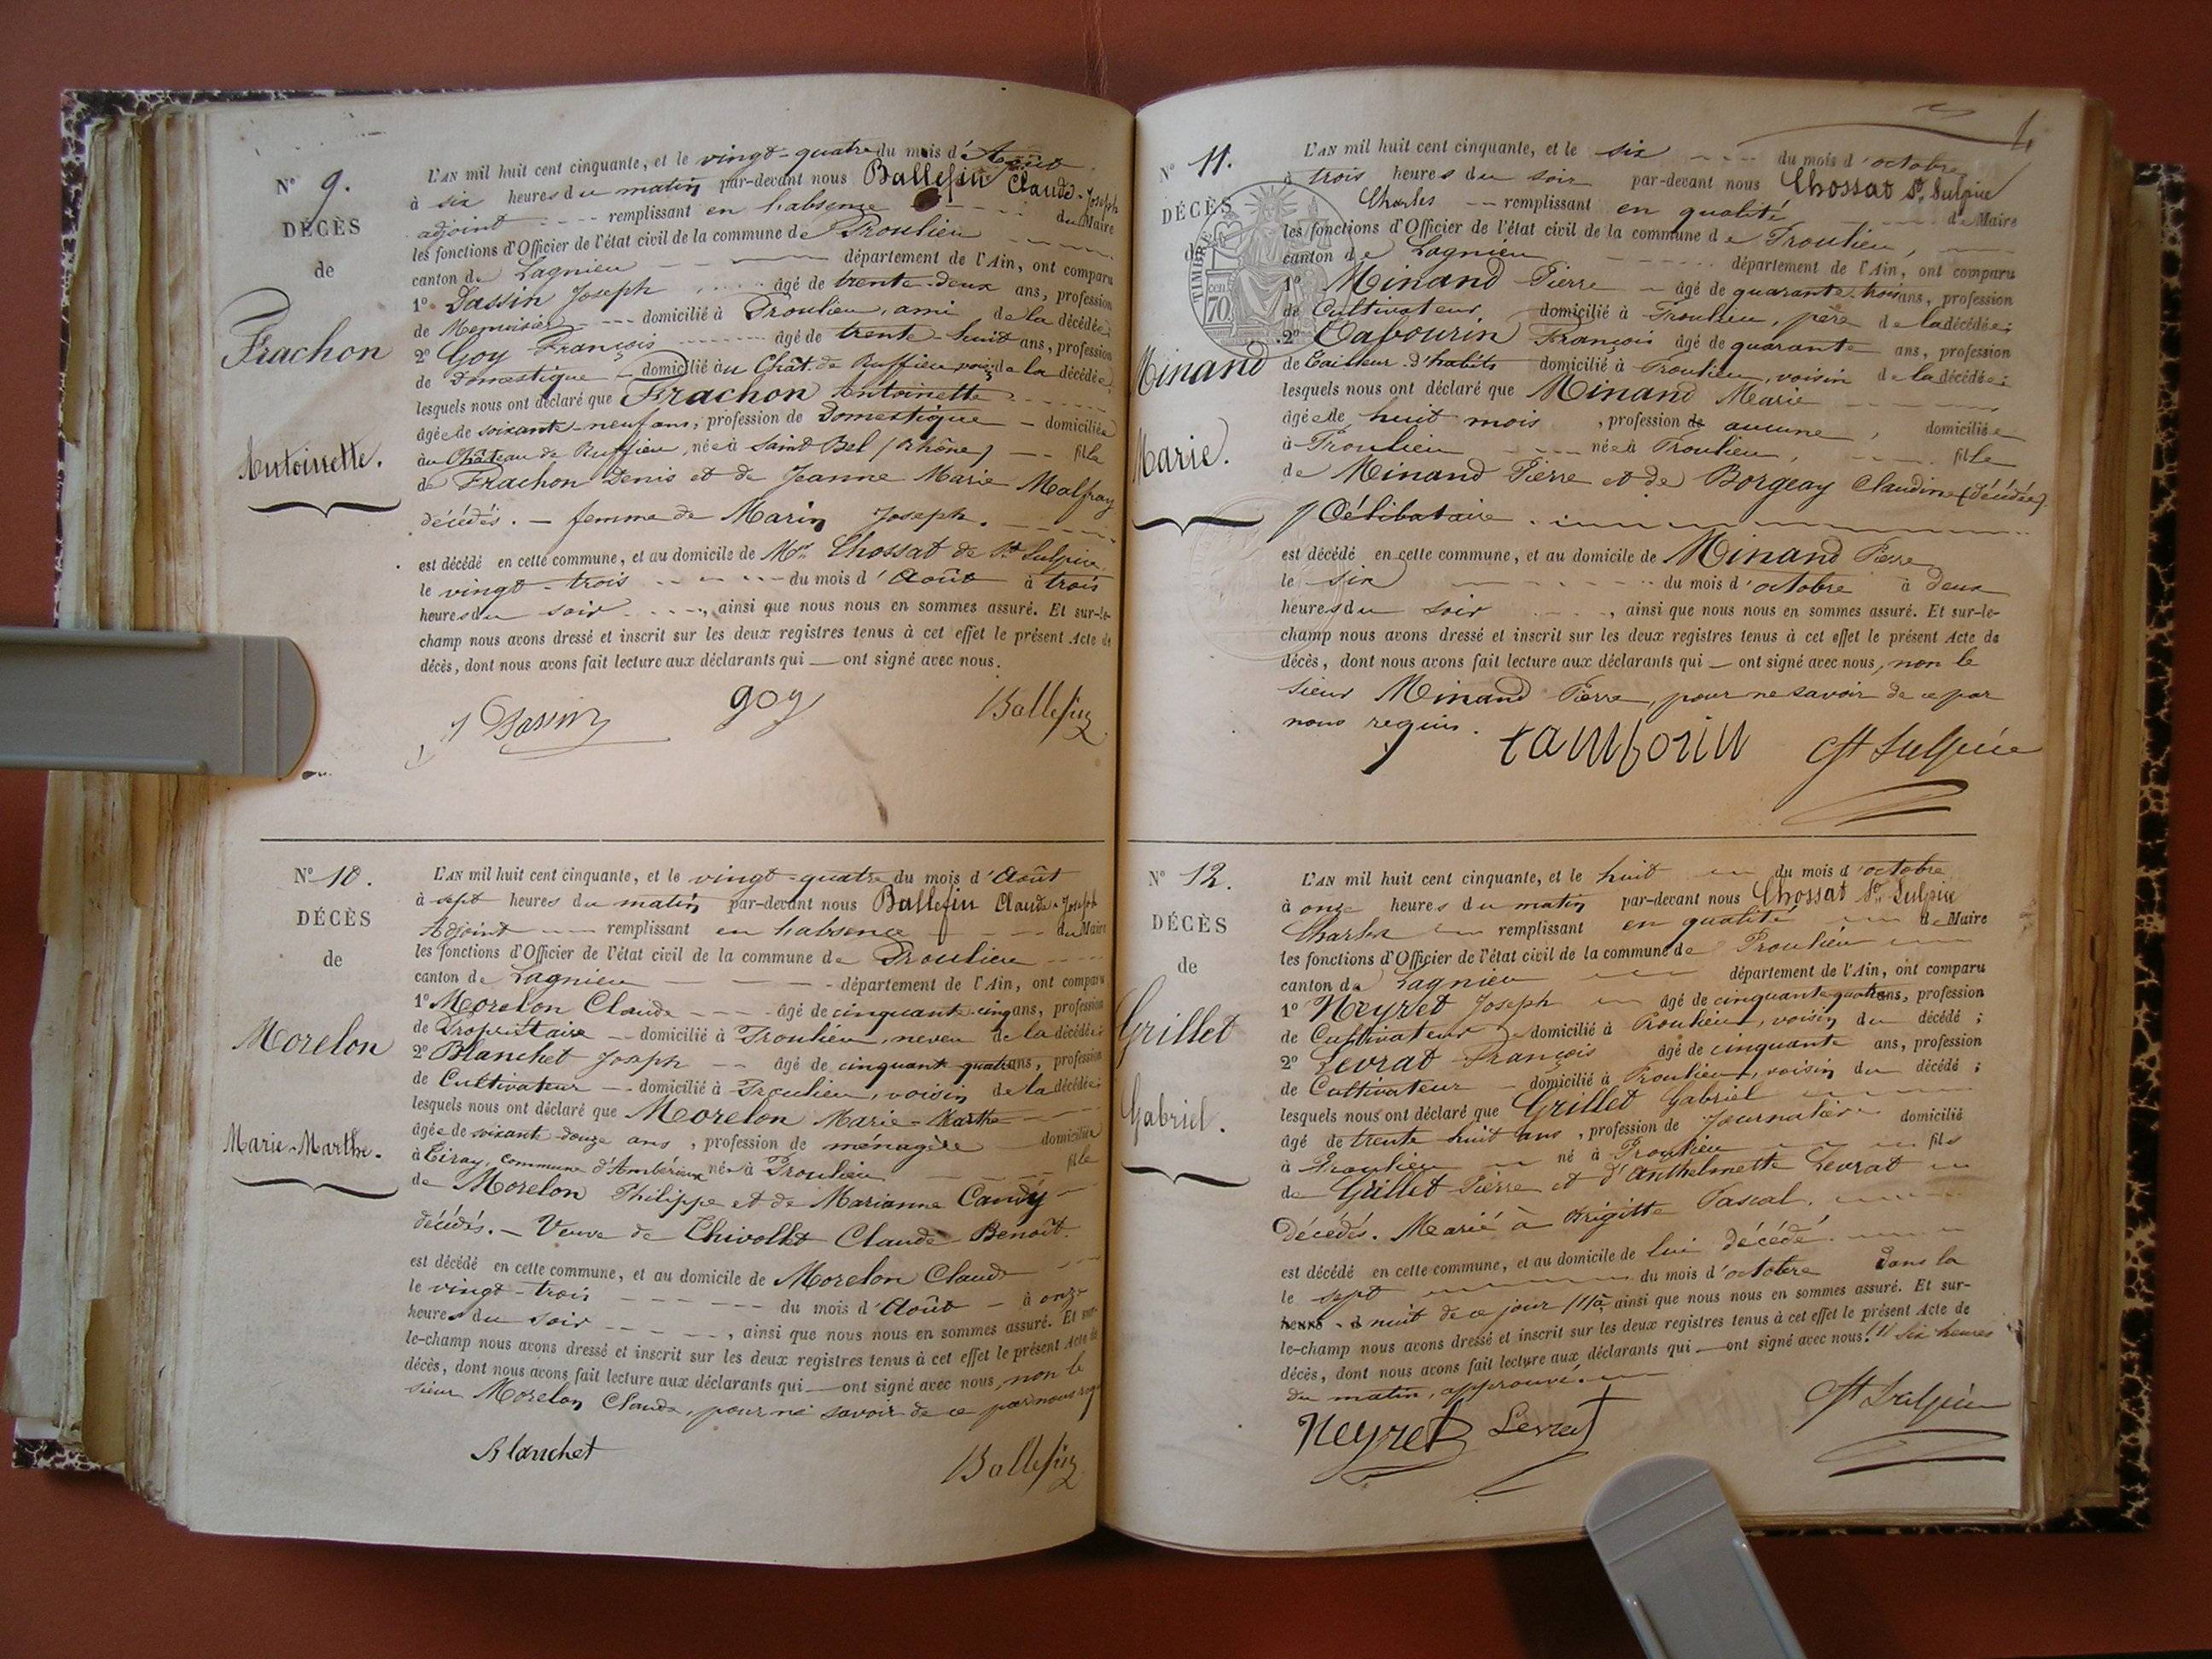 N° 9.
DÉCÈS
de
Frachon
Antoinette.
L'AN mil huit cent cinquante, et le vingt-quatre du mois d'Août
à six heures du matin par-devant nous Ballefin Claude-Joseph
adjoint remplissant en l'absence du Maire
les fonctions d'Officier de l'état civil de la commune de Proulieu
canton de Lagnieu département de l'Ain, ont comparu
1° Dassin Joseph âgé de trente-deux ans, profession
de Menuisier domicilié à Proulieu, ami de la décédée;
2° Goy François âgé de trente-huit ans, profession
de Domestique domicilié au Chât. de Ruffieu, voisin de la décédée;
lesquels nous ont déclaré que Frachon Antoinette
âgée de soixante-neuf ans, profession de Domestique domiciliée
au Château de Ruffieu, née à Saint-Bel (Rhône) fille
de Frachon Denis et de Jeanne Marie Malfray
décédés. — femme de Marin Joseph.
est décédé en cette commune, et au domicile de Mr. Chossat de St. Sulpice,
le vingt-trois du mois d'Août à trois
heures du soir, ainsi que nous nous en sommes assuré. Et sur-le-
champ nous avons dressé et inscrit sur les deux registres tenus à cet effet le présent Acte de
décès, dont nous avons fait lecture aux déclarants qui — ont signé avec nous.
J Dassin goy Ballefin
N° 10.
DÉCÈS
de
Morelon
Marie-Marthe.
L'AN mil huit cent cinquante, et le vingt-quatre du mois d'Août
à sept heures du matin par-devant nous Ballefin Claude-Joseph
Adjoint remplissant en l'absence du Maire
les fonctions d'Officier de l'état civil de la commune de Proulieu
canton de Lagnieu département de l'Ain, ont comparu
1° Morelon Claude âgé de cinquante-cinq ans, profession
de Propriétaire domicilié à Proulieu, neveu de la décédée;
2° Blanchet Joseph âgé de cinquante-quatre ans, profession
de Cultivateur domicilié à Proulieu, voisin de la décédée;
lesquels nous ont déclaré que Morelon Marie-Marthe
âgée de soixante-douze ans, profession de ménagère domiciliée
à Tiray, commune d'Ambérieux née à Proulieu fille
de Morelon Philippe et de Marianne Candy
décédés. — Veuve de Chivollet Claude Benoît.
est décédé en cette commune, et au domicile de Morelon Claude
le vingt-trois du mois d'Août à onze
heures du soir, ainsi que nous nous en sommes assuré. Et sur-
le-champ nous avons dressé et inscrit sur les deux registres tenus à cet effet le présent Acte de
décès, dont nous avons fait lecture aux déclarants qui — ont signé avec nous, non le
sieur Morelon Claude, pour ne savoir de ce par nous req
Blanchet Ballefin
N° 11.
DÉCÈS
de
TIMBRE
70 cent
Minand
Marie.
L'AN mil huit cent cinquante, et le six du mois d'octobre
à trois heures du soir par-devant nous Chossat St. Sulpice
Charles remplissant en qualité de Maire
les fonctions d'Officier de l'état civil de la commune de Proulieu
canton de Lagnieu département de l'Ain, ont comparu
1° Minand Pierre âgé de quarante-trois ans, profession
de Cultivateur, domicilié à Proulieu, père de la décédée;
2° Tabourin François âgé de quarante ans, profession
de Tailleur d'habits domicilié à Proulieu, voisin de la décédée;
lesquels nous ont déclaré que Minand Marie
âgée de huit mois, profession de aucune, domiciliée
à Proulieu née à Proulieu, fille
de Minand Pierre et de Borgeay Claudine (décédée).
Célibataire.
est décédé en cette commune, et au domicile de Minand Pierre
le six du mois d'octobre à deux
heures du soir, ainsi que nous nous en sommes assuré. Et sur-le-
champ nous avons dressé et inscrit sur les deux registres tenus à cet effet le présent Acte de
décès, dont nous avons fait lecture aux déclarants qui — ont signé avec nous, non le
sieur Minand Pierre, pour ne savoir de ce par
nous requis.
tambourin Cst Sulpice
N° 12.
DÉCÈS
de
Grillet
Gabriel.
L'AN mil huit cent cinquante, et le huit du mois d'octobre
à onze heures du matin par-devant nous Chossat St. Sulpice
Charles remplissant en qualité de Maire
les fonctions d'Officier de l'état civil de la commune de Proulieu
canton de Lagnieu département de l'Ain, ont comparu
1° Neyret Joseph âgé de cinquante-quatre ans, profession
de Cultivateur domicilié à Proulieu, voisin du décédé;
2° Levrat François âgé de cinquante ans, profession
de Cultivateur domicilié à Proulieu, voisin du décédé;
lesquels nous ont déclaré que Grillet Gabriel
âgé de trente huit ans, profession de Journalier domicilié
à Proulieu né à Proulieu fils
de Grillet Pierre et d'Anthelmette Levrat
Décédés. Marié à Brigitte Pascal.
est décédé en cette commune, et au domicile de lui décédé.
le sept du mois d'octobre dans la
nuit de ce jour //à, ainsi que nous nous en sommes assuré. Et sur-
le-champ nous avons dressé et inscrit sur les deux registres tenus à cet effet le présent Acte de
décès, dont nous avons fait lecture aux déclarants qui — ont signé avec nous. // six heures
du matin, approuvé.
Neyret Levrat Cst Sulpice